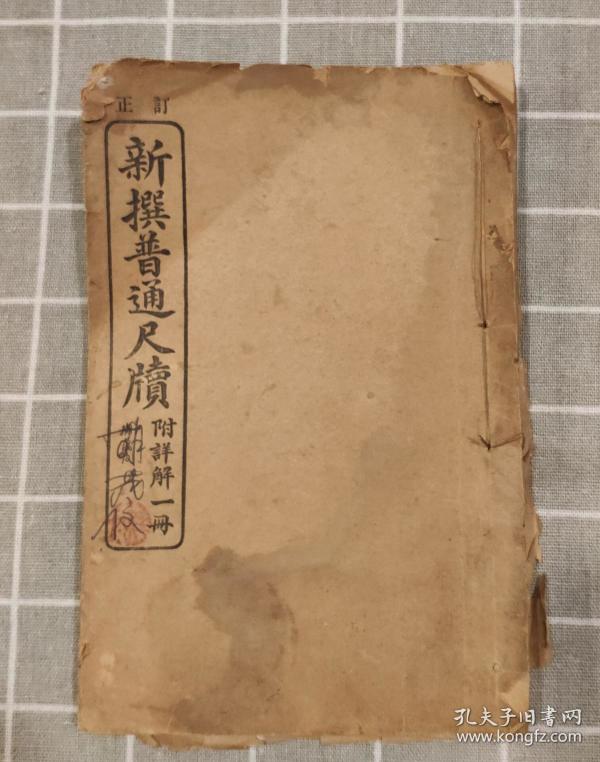 訂正
新撰普通尺牘
附詳解一冊
孔夫子旧书网
www.kongfz.com